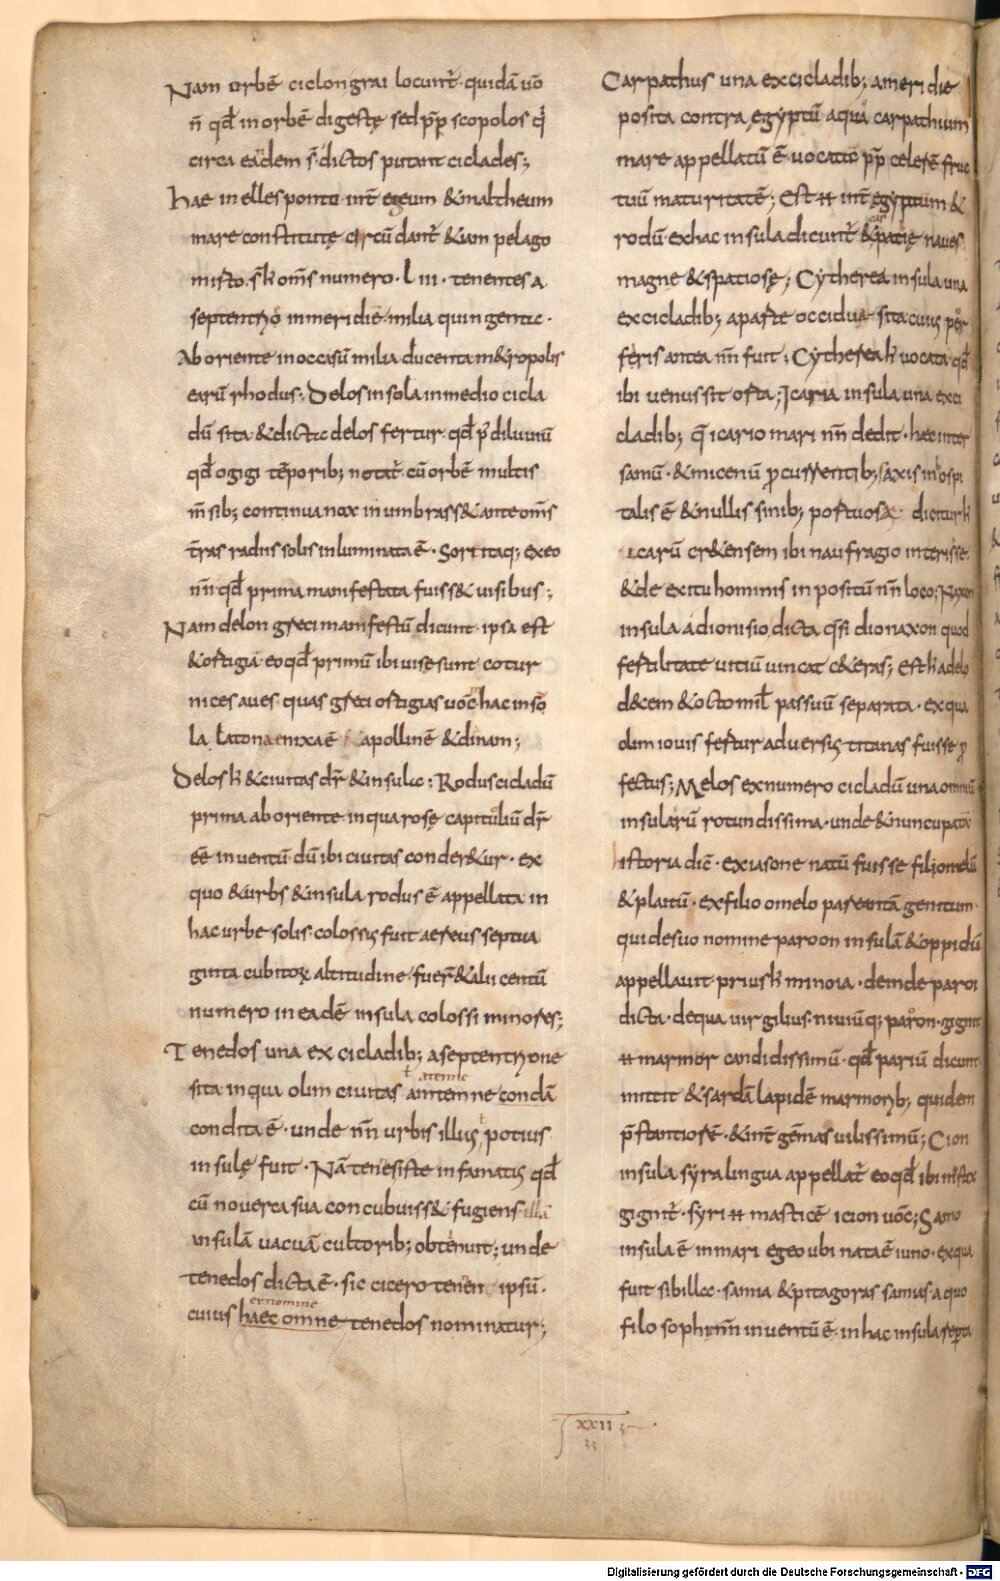 Nam orbē ciclon grai locunt̄· quidā uō
n̄ qđ in orbē digestę sed pp̄ scopolos q̄
circa eadem s̄ dictos putant ciclades;
Hae in elles ponto int̄ egeum &maltheum
mare constitutę circū dant̄ &iam pelago
misto· s̄ħ om̄s numero· l iii· tenentes a
septentrio in meridiē milia quingente·
Ab oriente in occasū milia ducenta m&ropolis
earū rhodus; Delos insola in medio cicla
dū sita &dicta delos fertur qđ p̄ diluuiū
qđ ogigi tēporib; notat̄ cū orbē multis
m̄sib; continua nox in umbrass& ante om̄s
t̄ras radiis solis inluminata ē· Sortitaq; ex eo
nn̄ qđ prima manifestata fuiss& uisibus;
Nam delon greci manifestū dicunt· ipsa est
&ostigia· eo qđ primū ibi uise sunt cotur
nices aues· quas greci ostigias uōc· hac inso
la latona enixa ē apollinē &dinam;
Delos ħ &ciuitas dr̄ &insula; Rodus cicladū
prima ab oriente in qua rosę capitoliū dr̄
eē inuentū· dū ibi ciuitas conder&ur· ex
quo &urbs &insula rodus ē appellata in
hac urbe solis colossus fuit aereus septua
ginta cubitoꝝ altitudine· fuer̄ &alii centū
numero in eadē insula colossi minores;
Tenedos una ex cicladib; a septentrione
sita in qua olim ciuitas antenne condā
condita ē· unde nn̄ urbis illius potius
insulę fuit· Nā tenes iste infamatus qđ
cū nouerca sua concubuiss& fugiens illā
insulā uacuā cultorib; obtenuit; unde
tenedos dicta ē· sic cicero tenen ipsū·
ex nomine
cuius haec omne tenedos nominatur;
Carpathus una ex cicladib; a meridie
posita contra ęgyptū a qua carpathium
mare appellatū ē· uocata pp̄ celerē fruc
tuū maturitatē; Est ꝶ int̄ ęgyptum &
rodū· ex hac insula dicunt̄ &carpatię naues
magne &spatiosę; Cytherea insula una
ex cicladib; a parte occidua sita cuius por
feris antea nn̄ fuit; Cytherea ħ uocata qđ
ibi uenus sit orta; Icaria insula una ex ci
cladib; q̄ icario mari nn̄ dedit· haec inter
samū· &miceniū p̱currentib; saxis inhospi
talis ē &nullis sinib; portuosa dicitur ħ
icarū cr&ensem ibi naufragio interisse·
&de exitu hominis inpositū nn̄ loco; Naxon
insula a dionisio dicta q̄si dionaxon quod
fertilitate uitiū uincat c&eras; Est ħ a delo
d&cem &octo mił passuū separata· ex qua
olim iouis fertur aduersus titanas fuisse p̱
fectus; Melos ex numero cicladū una omniū
insularū rotundissima· unde &nuncupata
istoria dic̄· ex iasone natū fuisse filiomelū
&plautū· ex filio omelo pareantā genitum·
qui de suo nomine paroon insulā &oppidū
appellauit· prius ħ minoia· deinde paroi
dicta· de qua uirgilius· niuiūq; paron· gignit
ꝶ marmor candidissimū· qđ pariū dicunt
mittit &sardā lapidē marmorib; quidem
p̄stantiorē· &int̄ gēmas uilissimū; Cion
insula syra lingua appellat̄ eo qđ ibi mastex
gignit̄· syri ꝶ masticē icion uōc; Samo
insula ē in mari egeo ubi nata ē iuno· ex qua
fuit sibilla· samia &pitagoras samius a quo
filosophię nn̄ inuentū ē· in hac insula reperta
XXII
33
Digitalisierung gefördert durch die Deutsche Forschungsgemeinschaft - DFG